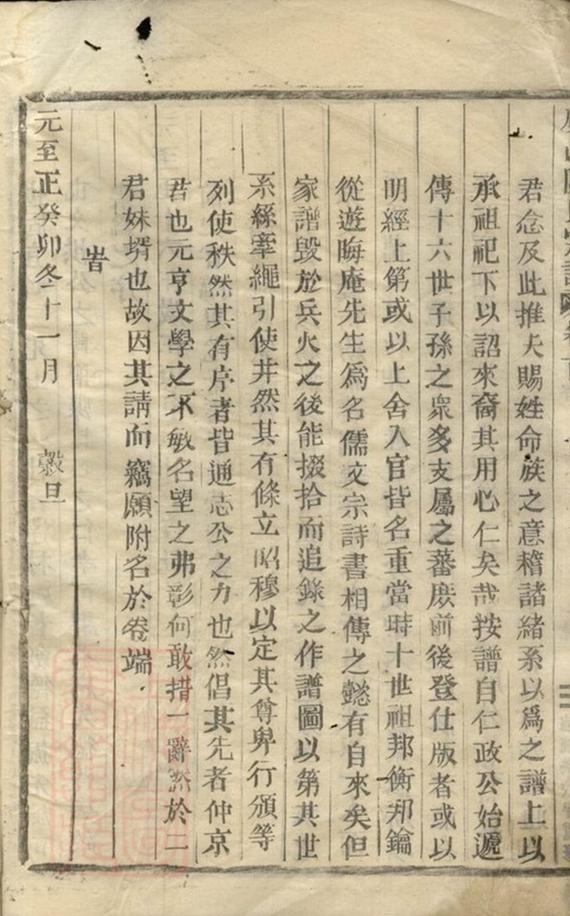 君念及此推夫賜姓命族之意稽諸緒系以為之譜上以
承祖祀下以詔來裔其用心仁矣哉按譜自仁政公始遞
傳十六世子孫之眾多支屬之蕃庶前後登仕版者或以
明經上第或以上舍入官皆名重當時十世祖邦衡邦鑰
從遊晦庵先生為名儒文宗詩書相傳之懿有自來矣但
家譜毀於兵火之後能掇拾而追錄之作譜圖以第其世
系絲牽繩引使井然其有條立昭穆以定其尊卑行頒等
列使秩然其有序者皆通志公之力也然倡其先者仲京
君也元亨文學之不敏名望之弗彰何敢措一辭然於二
君妹壻也故因其請而竊願附名於卷端
旹
元至正癸卯冬十一月 穀旦